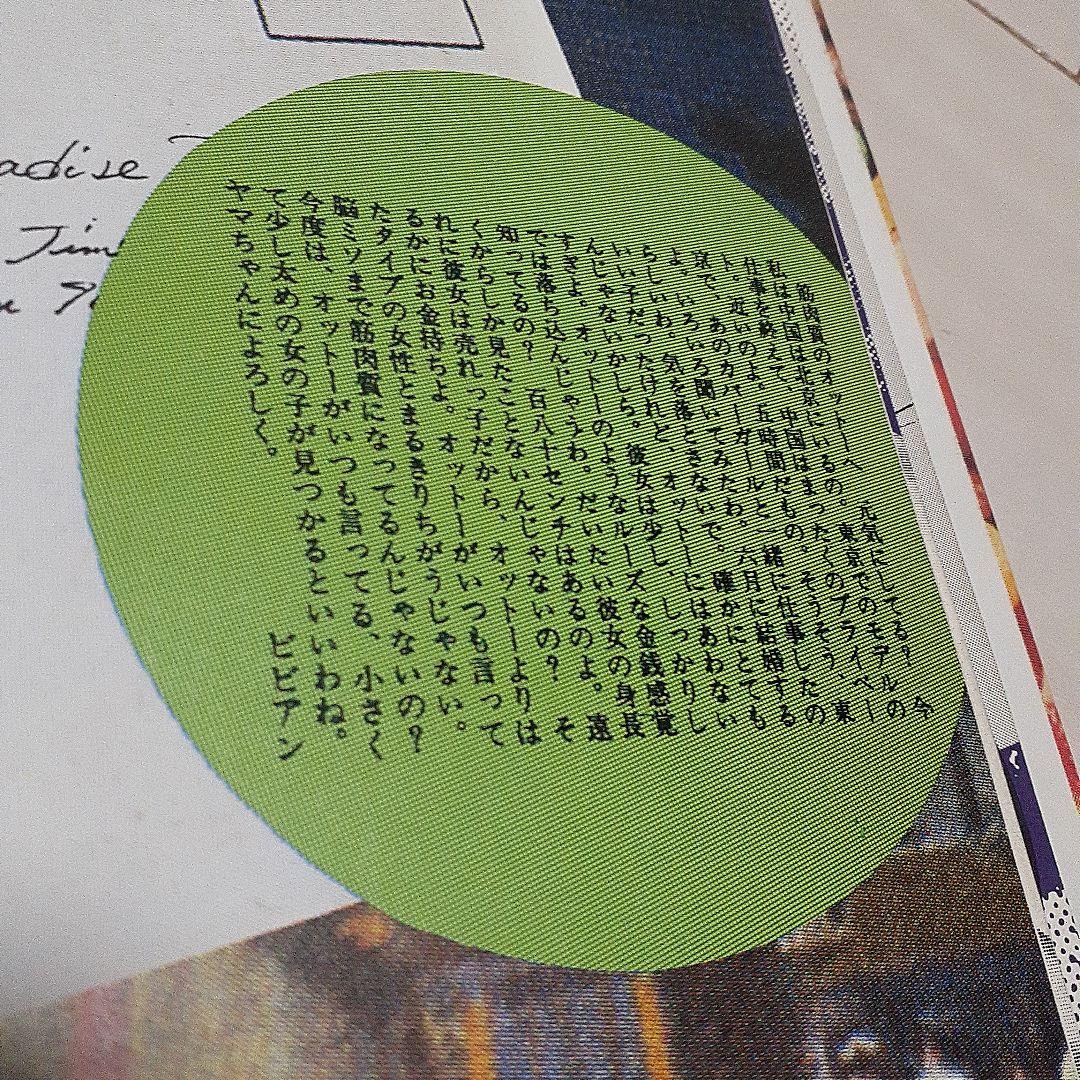 筋肉質のオットーへ　元気にしてる？　今
私は中国は北京にいるの。東京でのモデルの
仕事を終えて、中国はまったくのプライベー
ト。近いのよ、五時間だもの。そうそう、東
京で、あのカバーガールと一緒に仕事したの
よ。いろいろ聞いてみたわ。六月に結婚する
らしいわ。気を落とさないで。確かにとても
いい子だったけれど、オットーにはあわない
んじゃないかしら。彼女は少し、しっかりし
すぎよ。オットーのようなルーズな金銭感覚
では落ち込んじゃうわ。だいたい彼女の身長
知ってるの？　百八十センチはあるのよ。遠
くからしか見たことないんじゃないの？　そ
れに彼女は売れっ子だから、オットーよりは
るかにお金持ちよ。オットーがいつも言って
たタイプの女性とまるきりちがうじゃない。
脳ミソまで筋肉質になってるんじゃないの？
今度は、オットーがいつも言ってる、小さく
て少し太めの女の子が見つかるといいわね。
ヤマちゃんによろしく。
ビビアン
adise
Jim